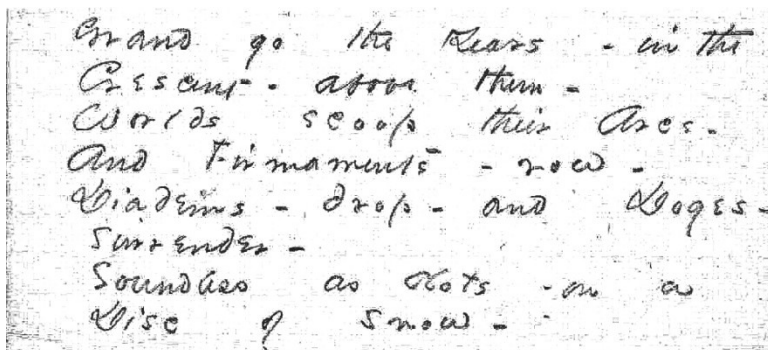 Grand go the Years - in the
Crescent - above them -
Worlds scoop their Arcs -
And Firmaments - row -
Diadems - drop - and Doges -
Surrender -
Soundless as dots - on a
Disc of Snow -